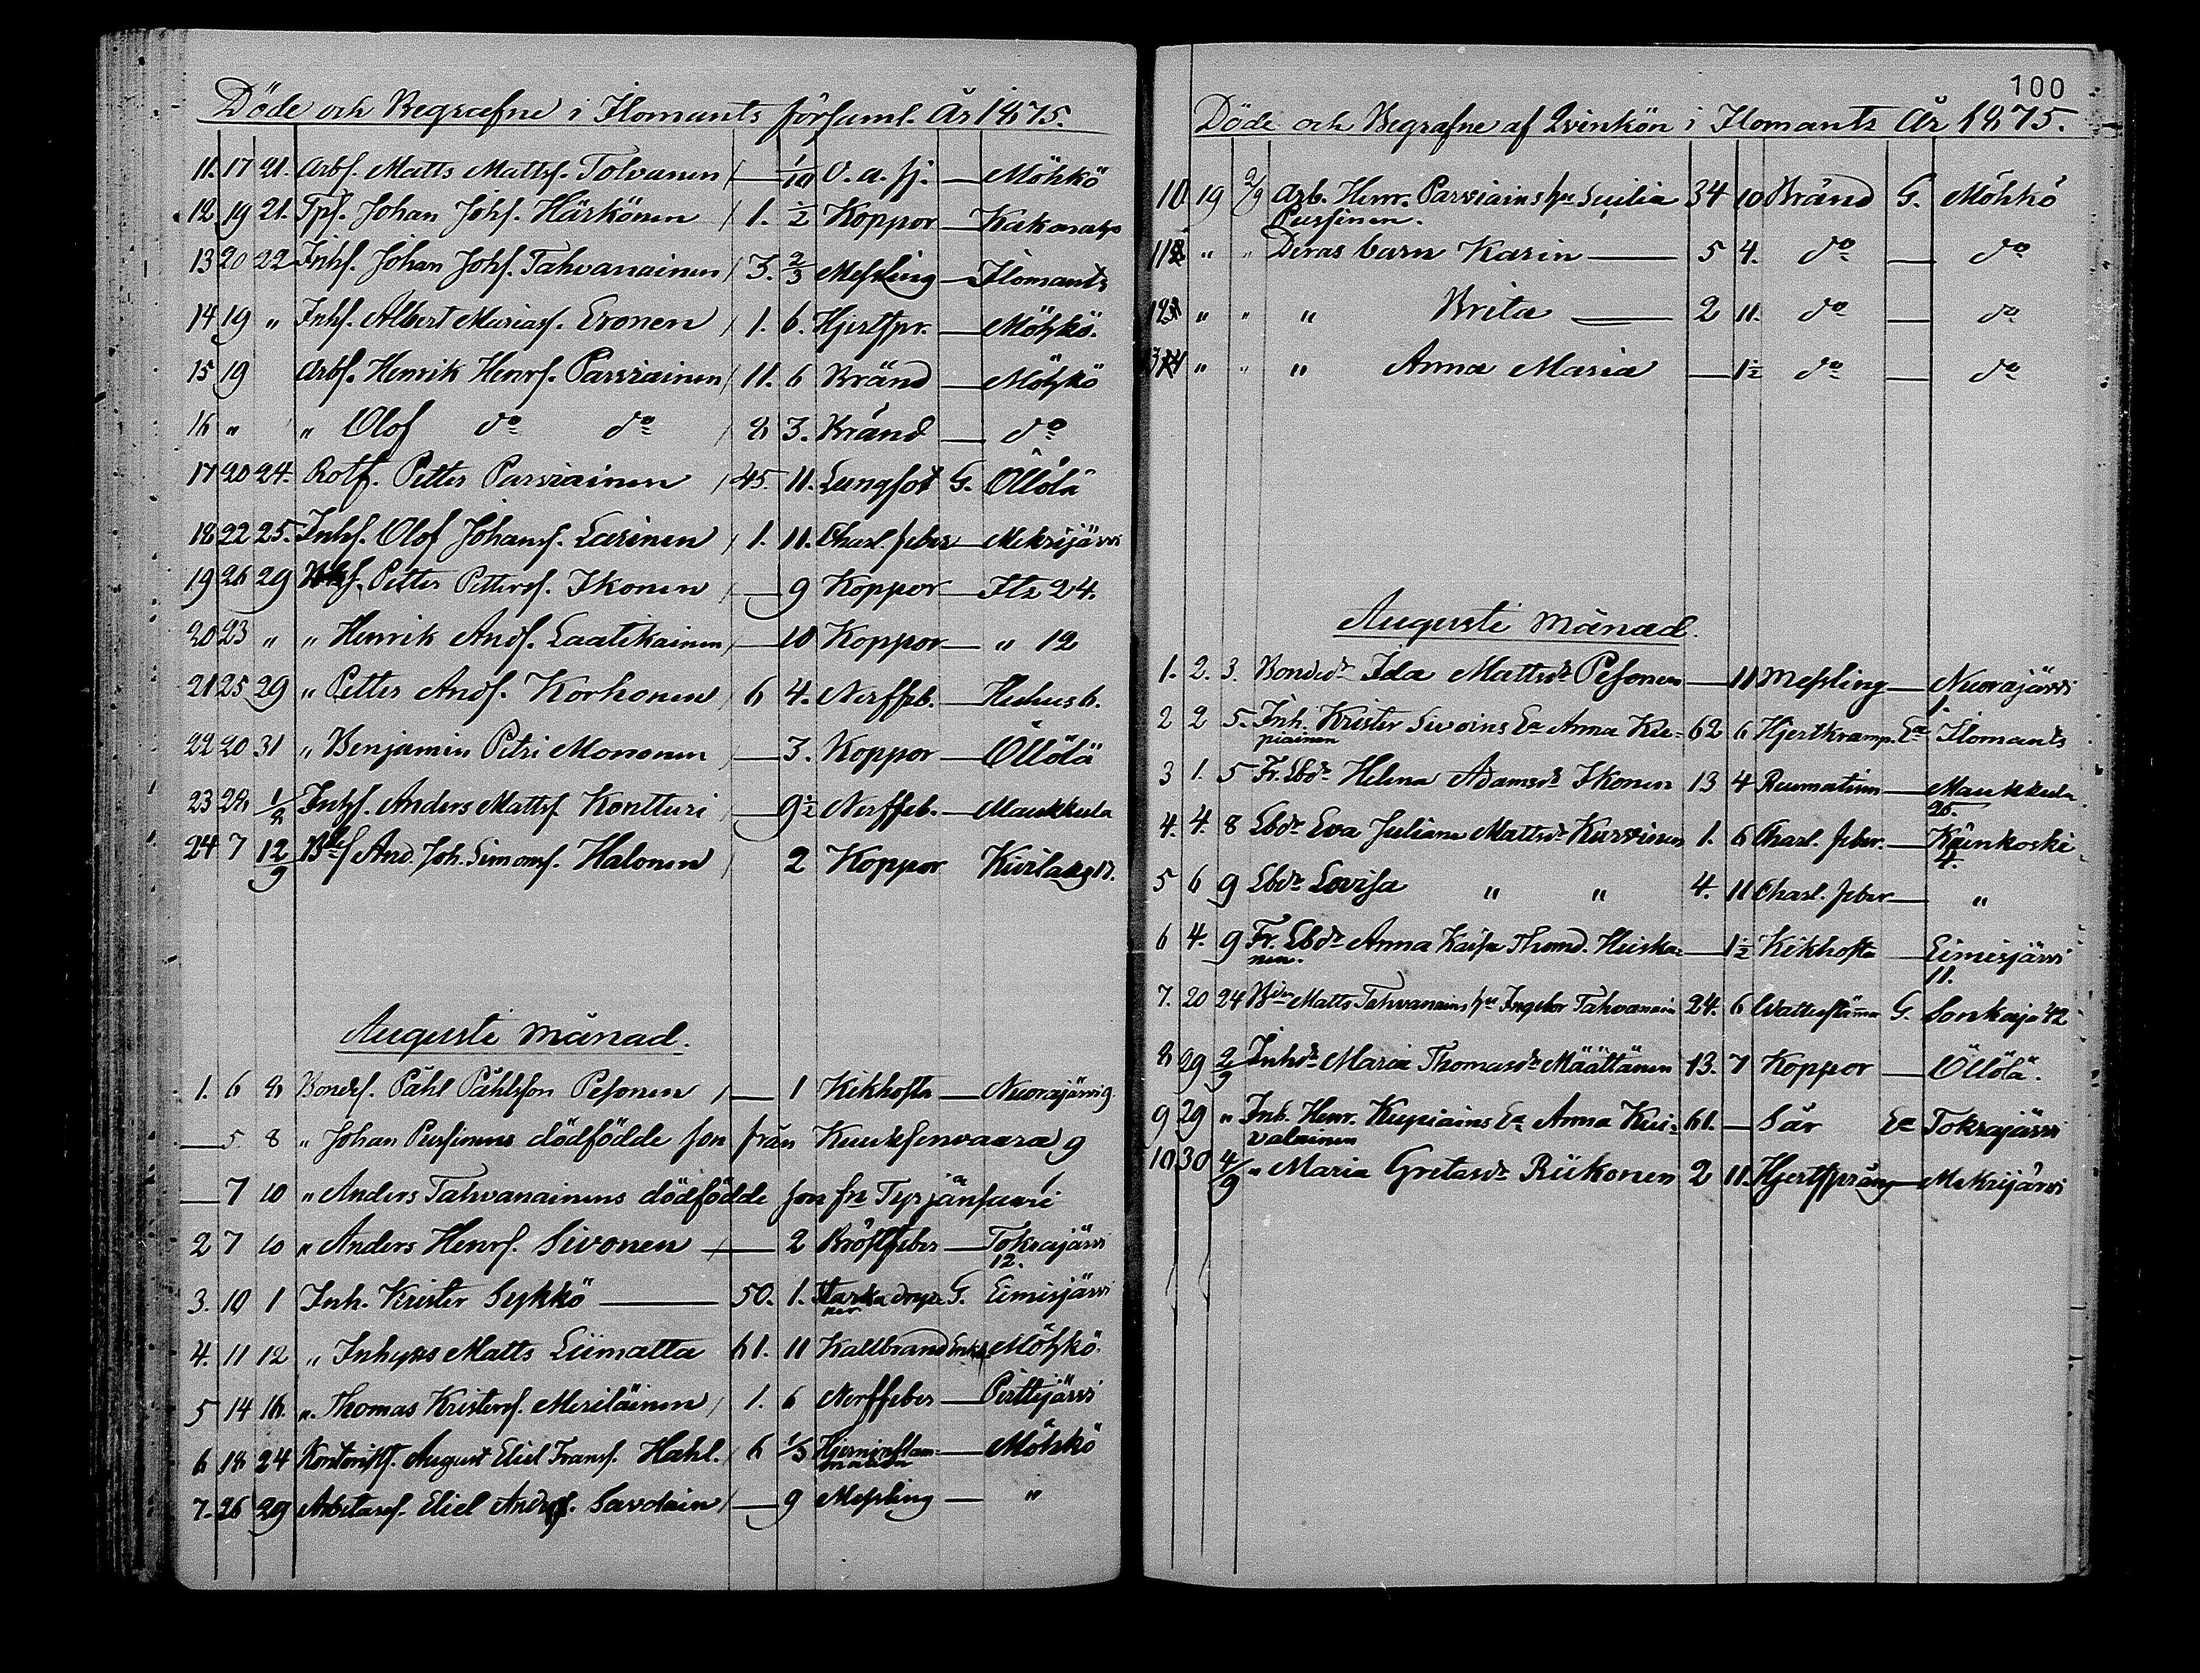 Döde och Begrafne i Ilomants församl. År 1875.
11. 17 21. Arbs. Matts Mattss. Tolvanen — 1/10 O. a. sj. — Möhkö
12. 19 21. Tps. Johan Johs. Härkönen 1. 1/2 Koppor —
13 20 22 Inhs. Johan Johs. Tahvanainen 3. 2/3 Messling — Ilomants
14 19 " Inhs. Albert Mariass. Eronen 1. 6. Hjertspr. — Möhkö.
15 19 Arbs. Henrik Henrs. Parviainen 11. 6 Bränd — Möhkö
16 " " Olof do do 8 3. Bränd — do
17 20 24. Rotf. Petter Parviainen 45. 11. Lungsot G. Öllölä
18 22 25. Inhs. Olof Johanss. Larinen 1. 11. Charl. feber — Mekrijärvi
19 26 29 Petter Petterss. Ikonen — 9 Koppor — Itz 24.
20 23 " " Henrik Ands. Laatikainen — 10 Koppor — " 12
21 25 29 " Petter Ands. Korhonen 6 4. Nerffeb. — Huhus 6.
22 20 31 " Benjamin Petri Mononen — 3. Koppor — Öllölä
23 28 1/8 Inhs. Anders Mattss. Kontturi — 9 1/2 Nerffeb. — Maukkula
24 7 12/9 And. Joh. Simonss. Halonen 2 Koppor
Augusti månad.
1. 6 8 Bondes. Påhl Påhlsson Pesonen — 1 Kikhosta — Nuorajärvi 9.
— 5 8 " Johan Pursinens dödfödde son från Kuuksenvaara 9
— 7 10 " Anders Tahvanainens dödfödde son fn Tyrjänsaari
2 7 10 " Anders Henrs. Sivonen — 2 Bröstfeber — Tokrajärvi
12.
3. 10 1 Inh. Krister Sykkö — 50. 1. Starka G. Eimisjärvi
4. 11 12 " Inhyses Matts Liimatta 61. 11 Kallbrand Enkl. Möhkö.
5 14 16. " Thomas Kristers. Meriläinen 1. 6 Nerffeber — Perttijärvi
6 18 24 Kontorists. August Eliel Frans. Hahl. 6 1/3 Hjerninflam-
mation — Möhkö
7. 26 29 Arbetares. Eliel Anders. Savolain — 9 Messling — "
100
Döde och Begrafne af Qvinkön i Ilomants År 1875.
10 19 2/9 Arb. Henr. Parviains hu Cecilia 34 10 Bränd G. Möhkö
Pursinen.
11 " " Deras barn Karin — 5 4. do — do
12 " " " Brita — 2 11. do — do
13 " " " Anna Maria — 1 1/2 do — do
Augusti månad.
1. 2. 3. Bonded:r Ida Mattsd:r Pesonen — 11 Messling — Nuorajärvi
2 2 5. Inh. Krister Sivoins Ea Anna Ku-
piainen 62 6 Hjertkramp. Ea Ilomants
3 1. 5 Fr. Lbd:r Helena Adamsd:r Ikonen 13 4 Reumatism — Maukkula
26.
4. 4. 8 Lbd:r Eva Juliana Mattsd:r Kurvinen 1. 6 Charl. feber. — Käenkoski
4.
5 6 9 Lbd:r Lovisa " " 4. 11 Charl. feber — "
6 4. 9 Fr. Lbd:r Anna Kaisa Thomd. Heiska-
nen. — 1 1/2 Kikhosta — Eimisjärvi
11.
7. 20 24 Bden Matts Tahvanains hu Ingebor Tahvanain 24. 6 G. Sonkaja 42
8 29 2/9 Inhd:r Maria Thomasd:r Määttänen 13. 7 Koppor — Öllölä.
9 29 " Inh. Henr. Kupiains Ea Anna Kui-
valainen 61. — Sår Ea Tokrajärvi
10 30 4/9 " Maria Gretasd:r Riikonen 2 11. Hjertsprång — Mekrijärvi